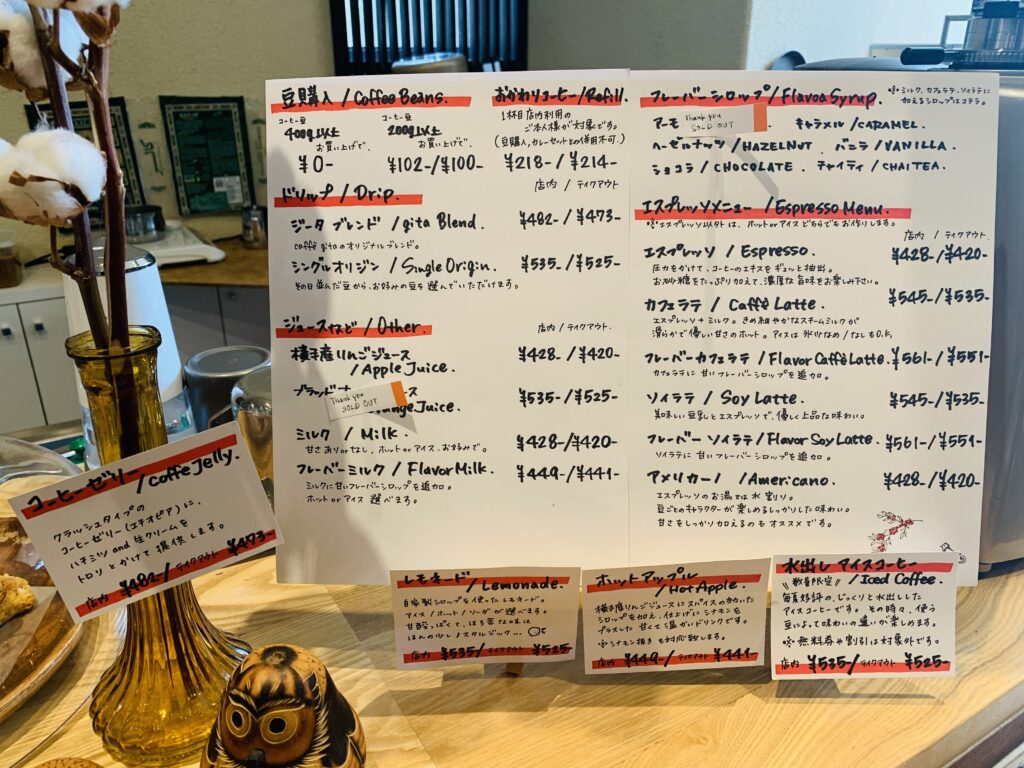 豆購入 / Coffee Beans.
コーヒー豆
400g以上
お買い上げで
¥0-
コーヒー豆
200g以上
お買い上げで、
¥102-/¥100-
おかわりコーヒー/Refill.
1杯目店内利用の
ご本人様が対象です。
(豆購入,カレーセットとの併用不可.)
¥218-/¥214-
ドリップ / Drip.
店内 / テイクアウト
ジータ ブレンド / gita Blend.
¥482-/¥473-
caffè gitaのオリジナルブレンド。
シングルオリジン / Single Origin.
¥535-/¥525-
その日並んだ豆から、お好みの豆を選んでいただけます。
ジュースなど / Other.
店内 / テイクアウト.
横手産りんごジュース
/ Apple Juice.
¥428-/¥420-
ブラッド
ース
Thank you
SOLD OUT
nge Juice.
¥535-/¥525-
ミルク / Milk.
¥428-/¥420-
甘さありorなし、ホットorアイス、お好みで。
フレーバーミルク / Flavor Milk.
¥449-/¥441-
ミルクに甘いフレーバーシロップを追加。
ホットorアイス 選べます。
フレーバーシロップ / Flavoa Syrup.
※ミルク、カフェラテ、ソイラテに
加えるシロップはコチラ。
アーモ
Thank you
SOLD OUT
キャラメル / CARAMEL.
ヘーゼルナッツ / HAZELNUT. バニラ / VANILLA.
ショコラ / CHOCOLATE. チャイティ / CHAI TEA.
エスプレッソメニュー / Espresso Menu.
※エスプレッソ以外は、ホットorアイスどちらでもお作りします。
店内 / テイクアウト.
エスプレッソ / Espresso.
¥428-/¥420-
圧力をかけて、コーヒーのエキスをギュッと抽出。
お砂糖をたっぷり加えて、濃厚な旨味をお楽しみ下さい。
カフェラテ / Caffè Latte.
¥545-/¥535-
エスプレッソ+ミルク。きめ細やかなスチームミルクが
滑らかで優しい甘さのホット。アイスは氷少なめ/なしもO.K.
フレーバーカフェラテ / Flavor Caffè Latte.
¥561-/¥551-
カフェラテに甘いフレーバーシロップを追加。
ソイラテ / Soy Latte.
¥545-/¥535-
美味しい豆乳とエスプレッソで、優しく上品な味わい。
フレーバー ソイラテ / Flavor Soy Latte.
¥561-/¥551-
ソイラテに甘いフレーバーシロップを追加。
アメリカーノ / Americano.
¥428-/¥420-
エスプレッソのお湯では水割り。
豆ごとのキャラクターが楽しめるしっかりした味わい。
甘さをしっかり加えるのもオススメです。
コーヒーゼリー / Coffe Jelly.
クラッシュタイプの
コーヒーゼリー(エチオピア)に、
ハチミツ and 生クリームを
トロリとかけて提供します。
店内 ¥482-/テイクアウト ¥473-
レモネード / Lemonade.
自家製シロップを使ったレモネード。
アイス/ホット/ソーダが選べます。
甘酸っぱくて、ほろ苦な味は
ほんの少しノスタルジック...
店内 ¥535-/テイクアウト ¥525-
ホットアップル / Hot Apple.
横手産りんごジュースにスパイスの効いた
シロップを加え、仕上げにシナモンを
プラスした 甘くて温かいドリンクです。
※シナモン抜きも対応致します。
店内 ¥449-/テイクアウト ¥441-
水出し アイスコーヒー
\\数量限定// / Iced Coffee.
毎夏好評の、じっくりと水出しした
アイスコーヒーです。その時々、使う
豆によって味わいの違いが楽しめます。
※無料券や割引は対象外です。
店内 ¥535-/テイクアウト ¥525-